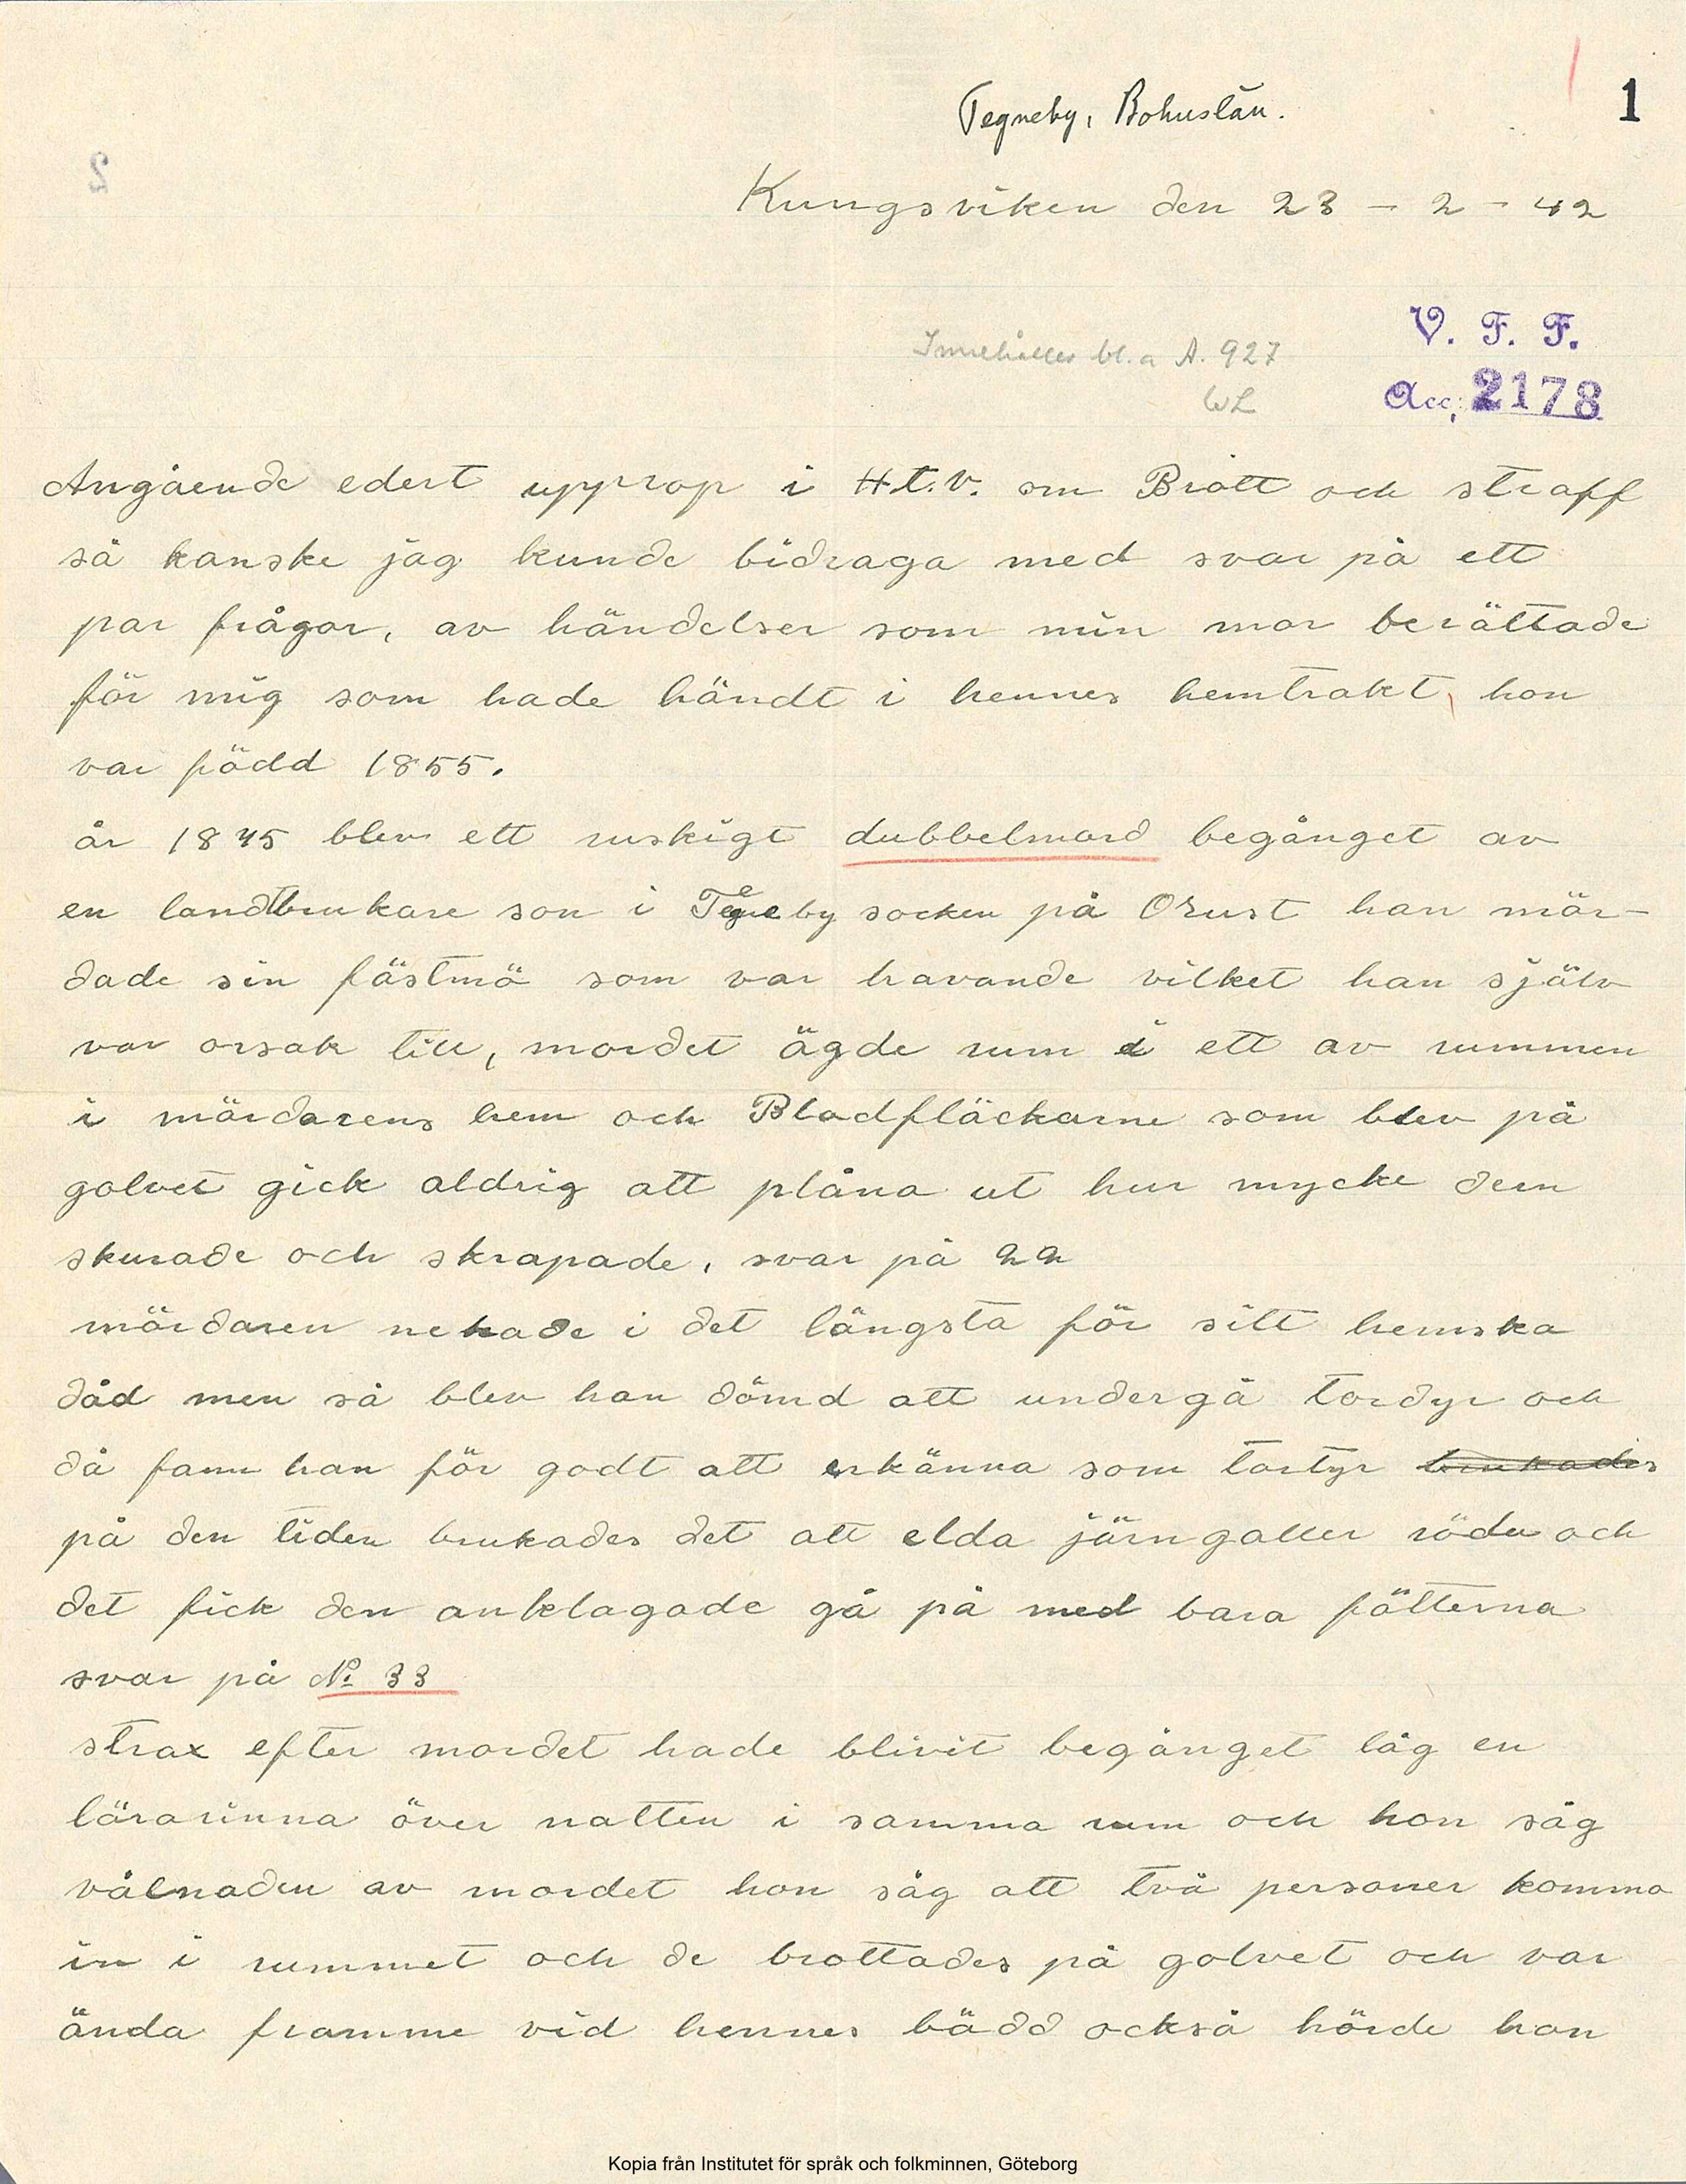 1
Tegneby, Bohuslän.
2
Kungsviken den 23 - 2 - 42
V. F. F.
Innehåller bl.a A. 927
WL
Acc. 2178
Angående edert upprop i H.t.V. om Brott och straff
så kanske jag kunde bidraga med svar på ett
par frågor, av händelser som min mor berättade
för mig som hade händt i hennes hemtrakt, hon
var född 1855.
år 1845 blev ett ruskigt dubbelmord begånget av
en landtbrukare son i Tegneby socken på Orust han mör-
dade sin fästmö som var havande vilket han själv
var orsak till, mordet ägde rum i ett av rummen
i mördarens hem och Blodfläckarne som blev på
golvet gick aldrig att plåna ut hur mycke dem
skurade och skrapade, svar på 22
mördaren nekade i det längsta för sitt hemska
dåd men så blev han dömd att undergå tordyr och
då fann han för godt att erkänna som tortyr brukades
på den tiden brukades det att elda järngaller röda och
det fick den anklagade gå på med bara fötterna
svar på No 33
strax efter mordet hade blivit begånget låg en
lärarinna över natten i samma rum och hon såg
vålnaden av mordet hon såg att två personer komma
in i rummet och de brottades på golvet och var
ända framme vid hennes bädd också hörde hon
Kopia från Institutet för språk och folkminnen, Göteborg